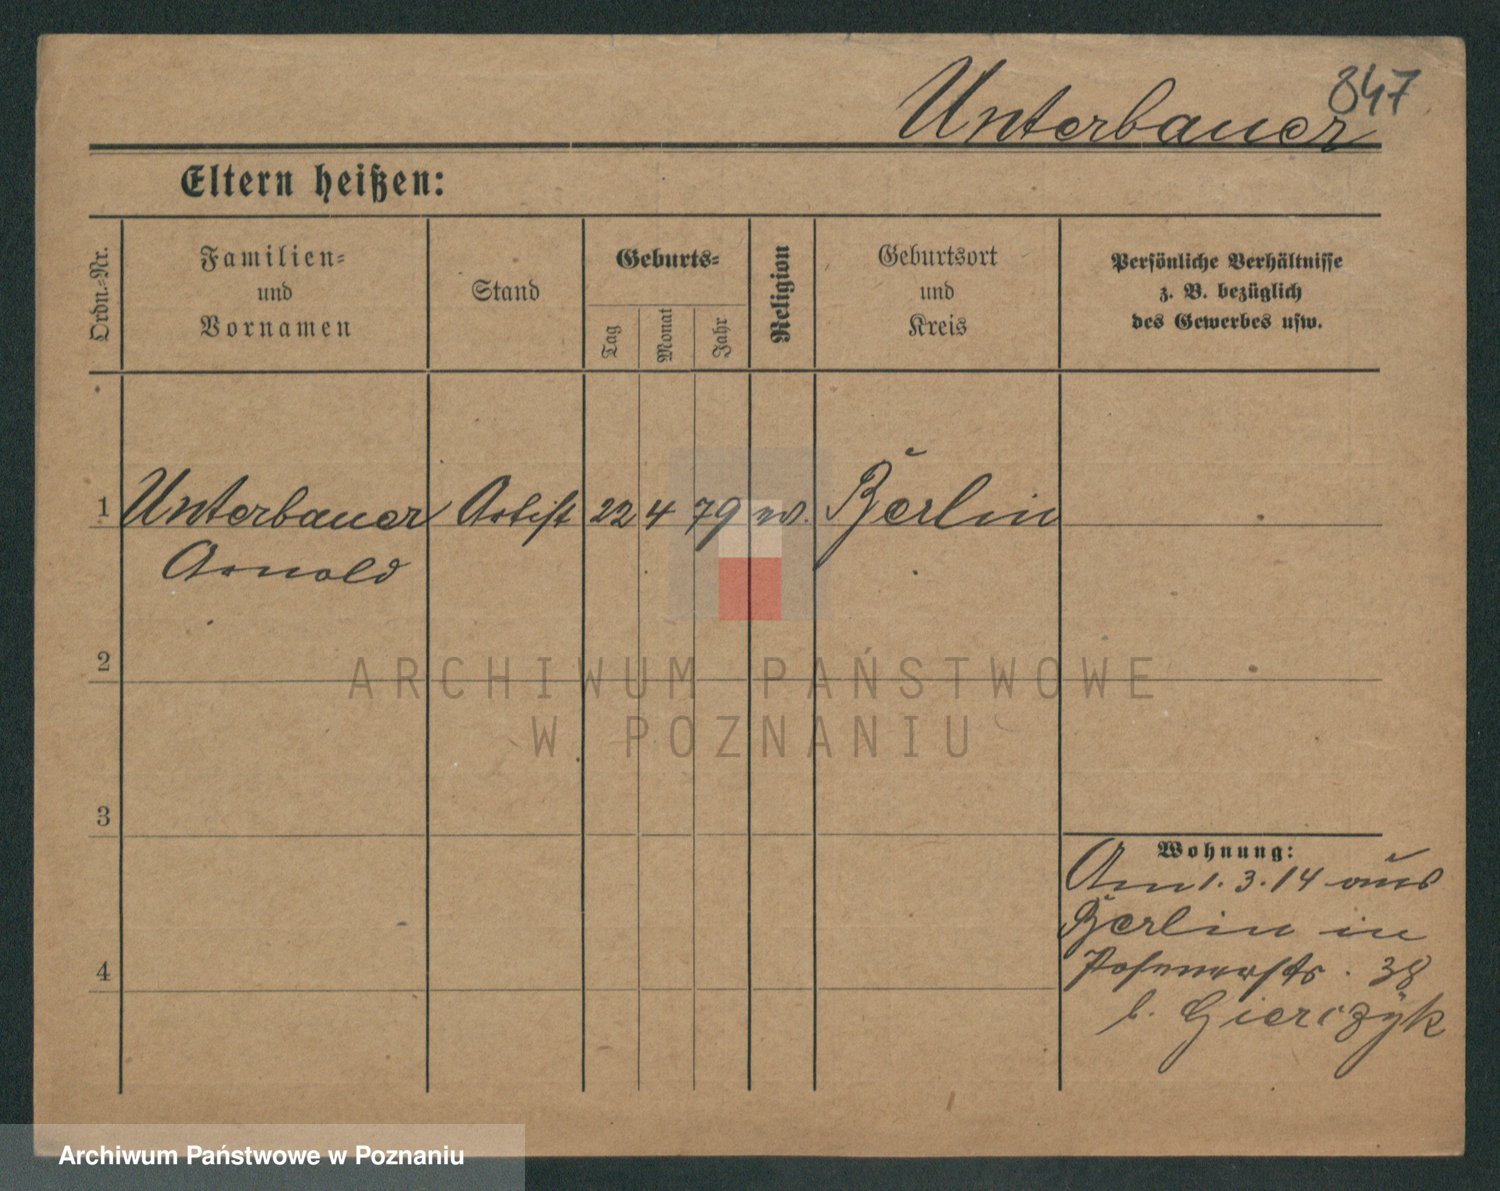 847
Unterbauer
Eltern heißen:
Ordn.-Nr.
Familien-
und
Vornamen
Stand
Geburts-
Tag
Monat
Jahr
Religion
Geburtsort
und
Kreis
Persönliche Verhältnisse
z. B. bezüglich
des Gewerbes usw.
1 Unterbauer Artist 22 4 79 ev. Berlin
Arnold
2
3
4
Wohnung:
Am 1. 3. 14 aus
Berlin in
Posenerstr. 38
b. Gierczyk
ARCHIWUM PAŃSTWOWE
W POZNANIU
Archiwum Państwowe w Poznaniu